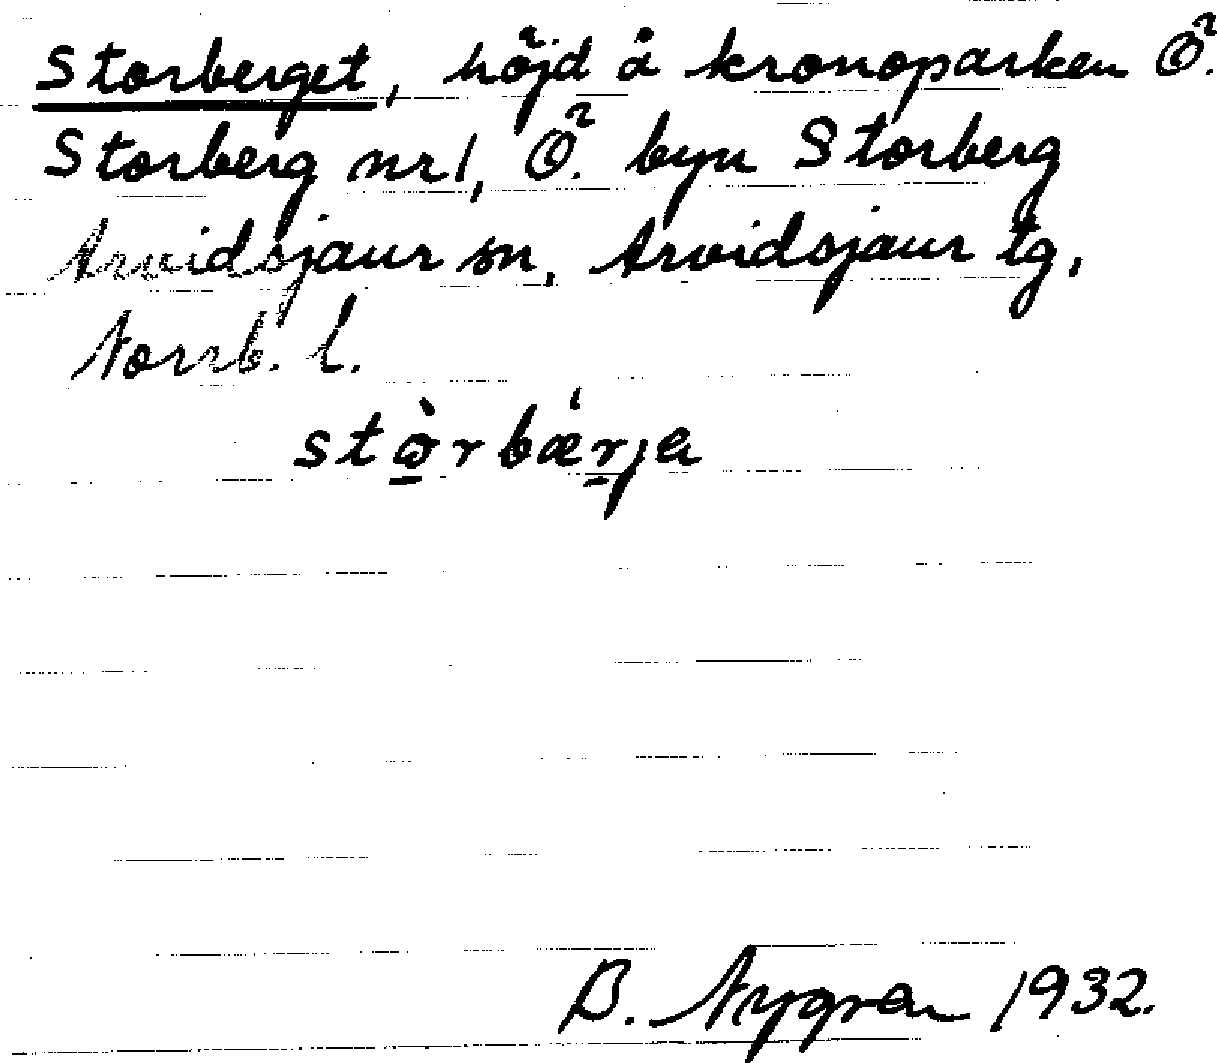 Storberget, höjd å kronoparken Ö.
Storberg nr 1, Ö. byn Storberg
Arvidsjaur sn, Arvidsjaur tg,
Norrb. l.
stòrbǽrja
B. Nygren 1932.